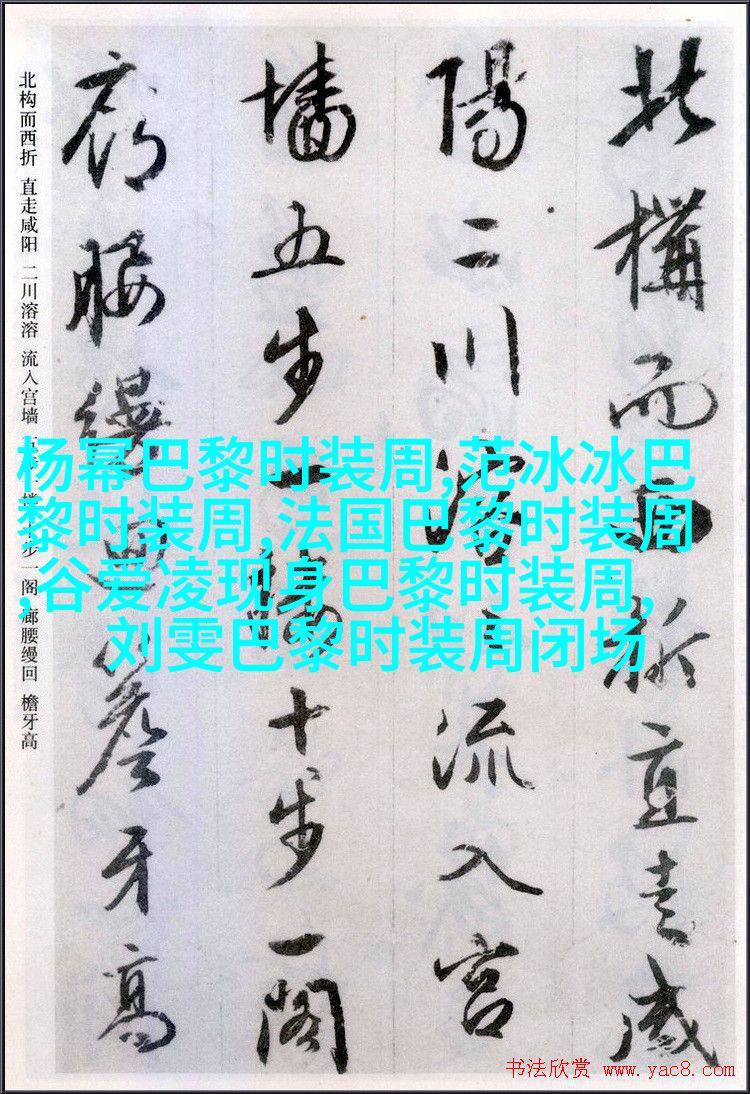 北構而西折直走咸
陽二川溶々流入宮
墻五步一樓十步一閣
廊腰縵迴簷牙高
北构而西折 直走咸阳 二川溶溶 流入宫墙 五步一楼 十步一阁 廊腰缦回 檐牙高
杨幂巴黎时装周,范冰冰巴
黎时装周,法国巴黎时装周
,谷爱凌现身巴黎时装周,
刘雯巴黎时装周闭场
书法欣赏 www.yac8.com